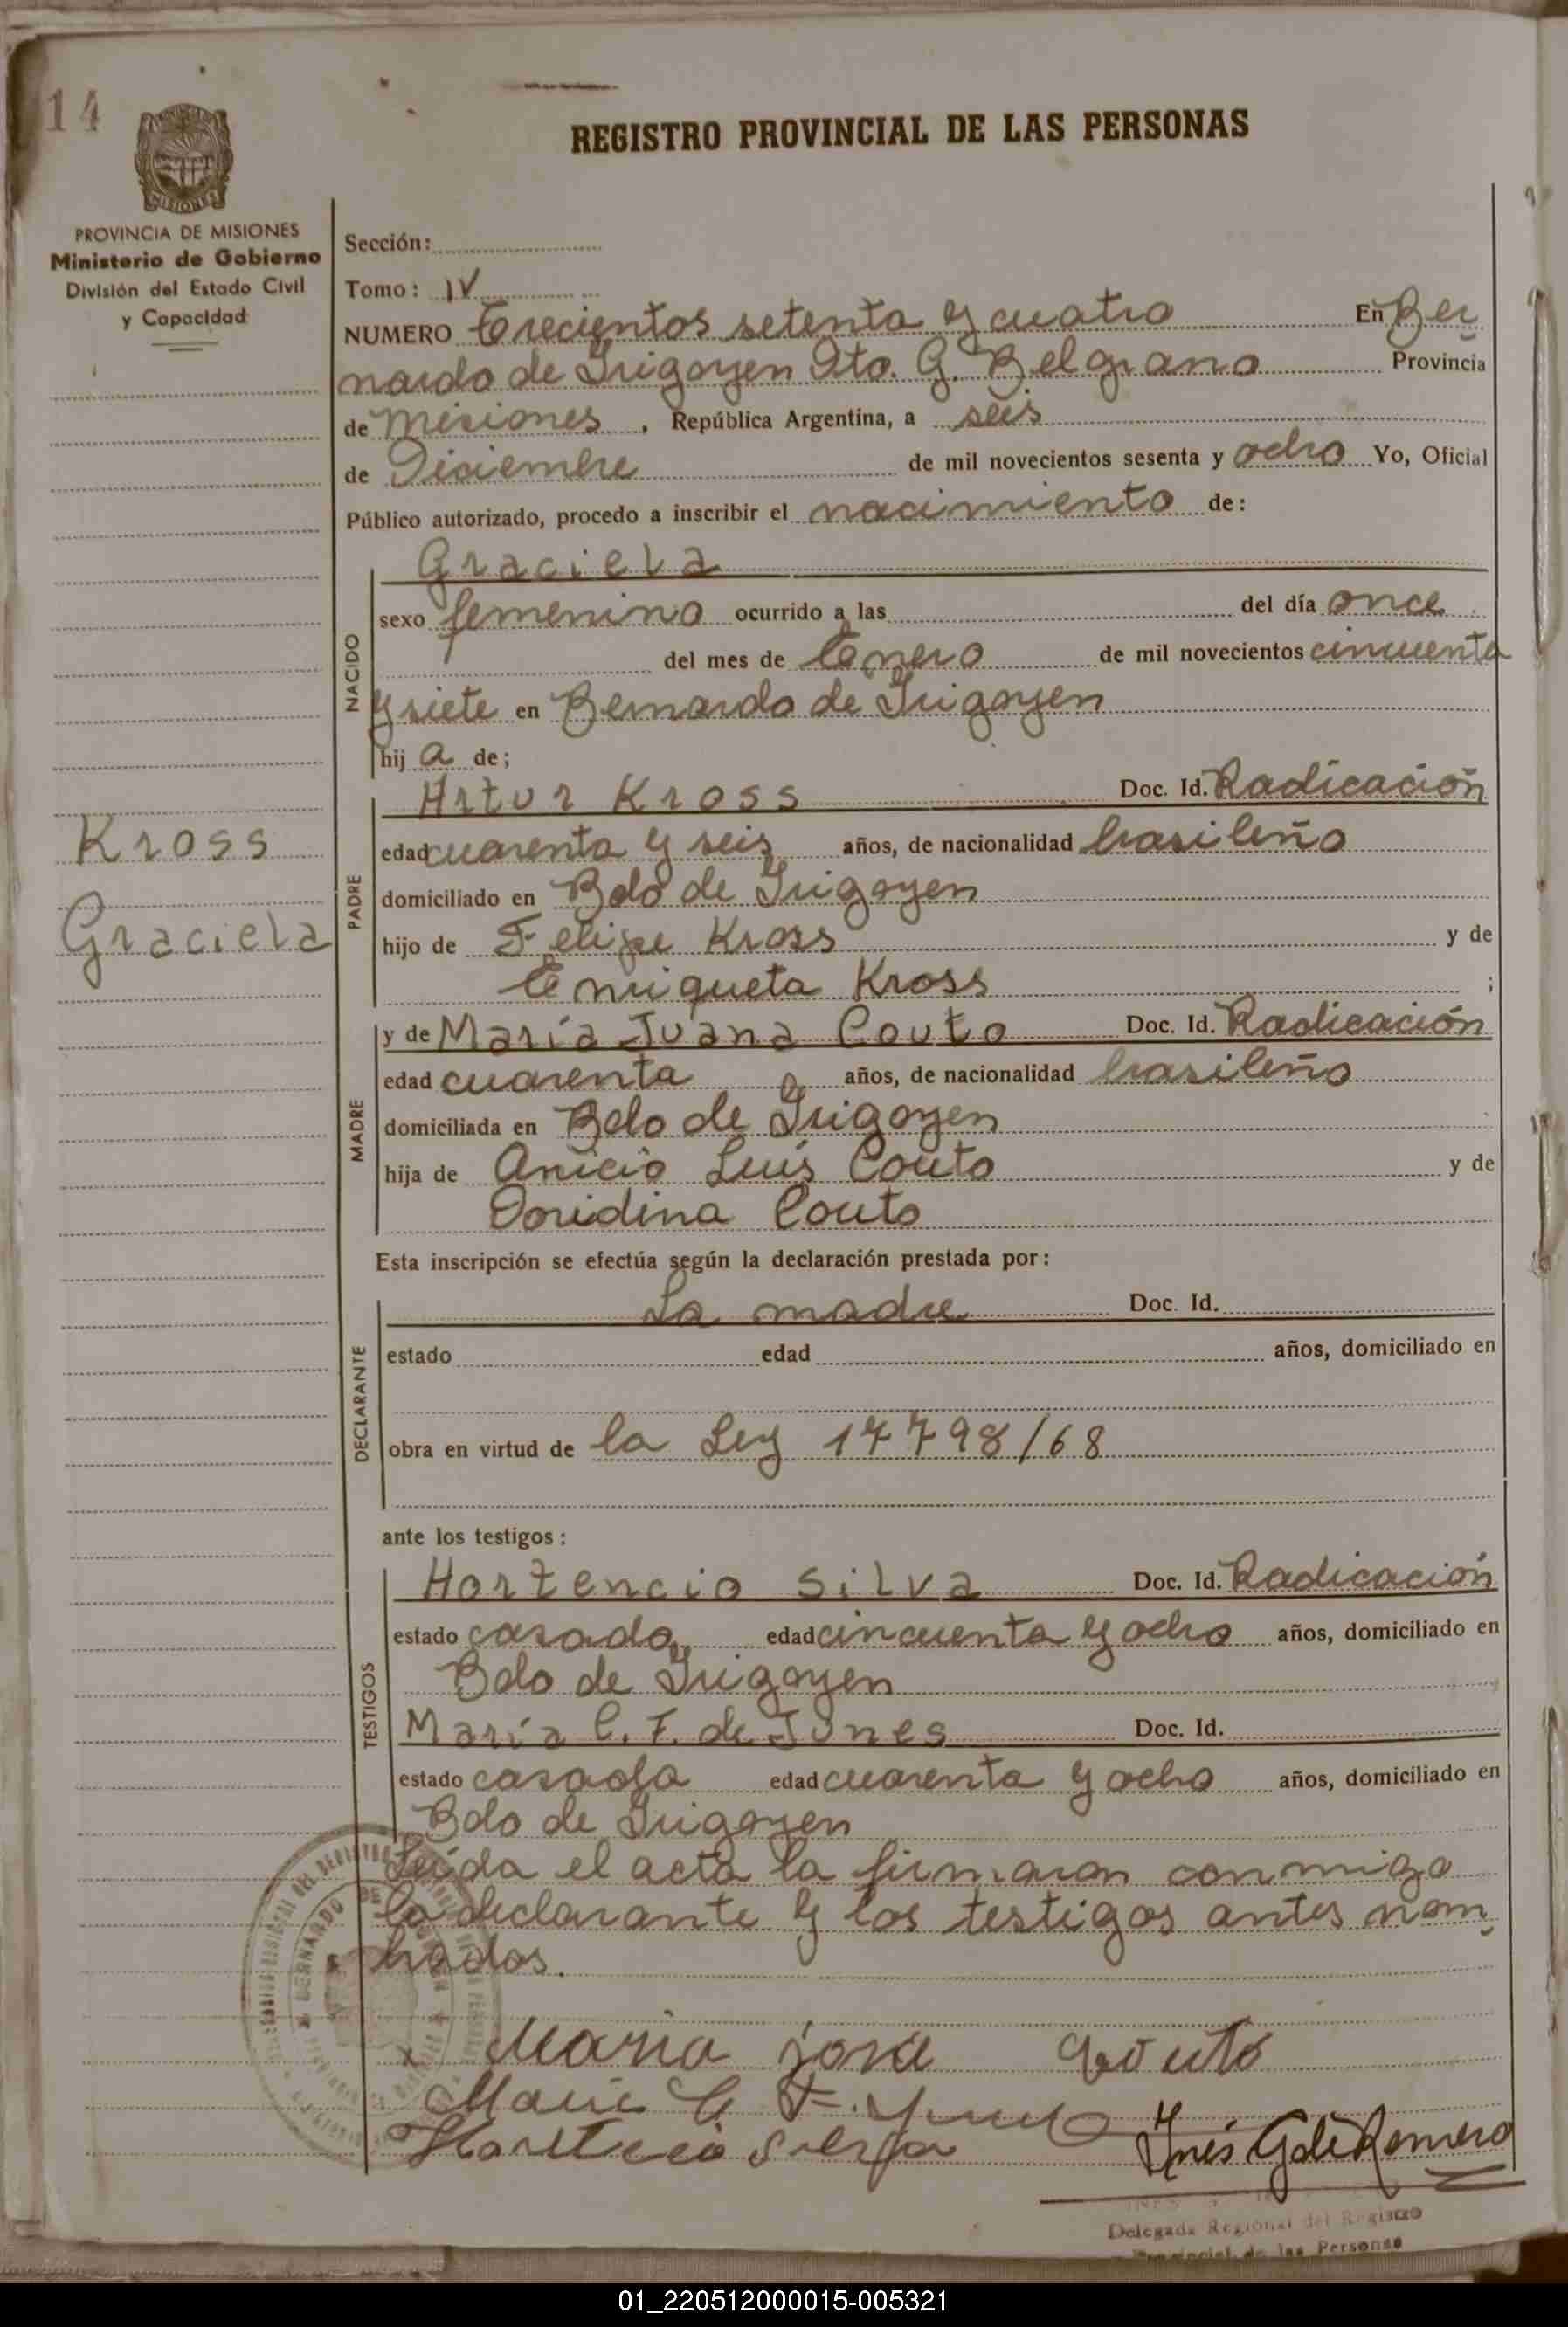 14
REGISTRO PROVINCIAL DE LAS PERSONAS
MISIONES
PROVINCIA DE MISIONES
Ministerio de Gobierno
División del Estado Civil
y Capacidad
Sección:
Tomo: IV
NUMERO Trecientos setenta y cuatro En Ber
nardo de Irigoyen Dto. G. Belgrano Provincia
de Misiones, República Argentina, a seis
de Diciembre de mil novecientos sesenta y ocho Yo, Oficial
Público autorizado, procedo a inscribir el nacimiento de:
Graciela
NACIDO
sexo femenino ocurrido a las del día once
del mes de Enero de mil novecientos cincuenta
y siete en Bernardo de Irigoyen
hij a de;
Artur Kross Doc. Id. Radicación
Kross
Graciela
PADRE
edad cuarenta y seis años, de nacionalidad brasileño
domiciliado en Bdo de Irigoyen
hijo de Felipe Kross y de
Enriqueta Kross ;
y de María Juana Couto Doc. Id. Radicación
MADRE
edad cuarenta años, de nacionalidad brasileño
domiciliada en Bdo de Irigoyen
hija de Anicio Luís Couto y de
Doridina Couto
Esta inscripción se efectúa según la declaración prestada por:
La madre Doc. Id.
DECLARANTE
estado edad años, domiciliado en
obra en virtud de la Ley 17798/68
ante los testigos:
Hortencio Silva Doc. Id. Radicación
TESTIGOS
estado casado edad cincuenta y ocho años, domiciliado en
Bdo de Irigoyen
María C. F. de Doc. Id.
estado casada edad cuarenta y ocho años, domiciliado en
Bdo de Irigoyen
Leída el acta la firmaron conmigo
la declarante y los testigos antes nom
brados.
Maria josé Couto
Maria C F.
Hortencio Silva
Inés G de Romero
Delegada Regional del Registro
Provincial de las Personas
01_220512000015-005321